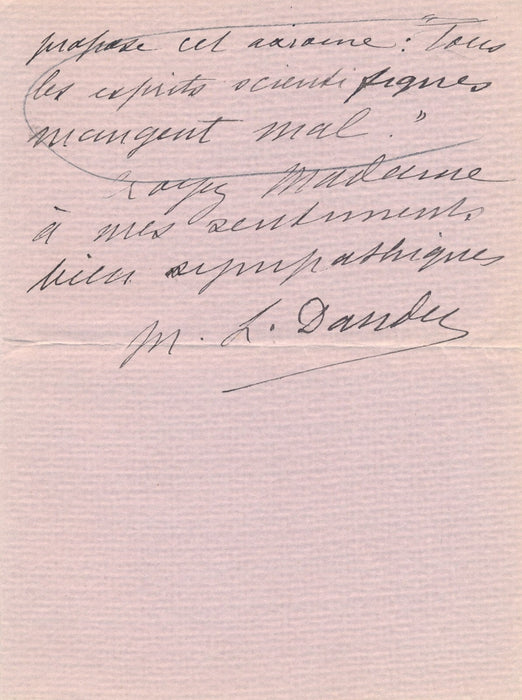 propose cet axiome : "Tous
les esprits scientifiques
mangent mal."
Croyez Madame
à mes sentiments
bien sympathiques
M. L. Dander